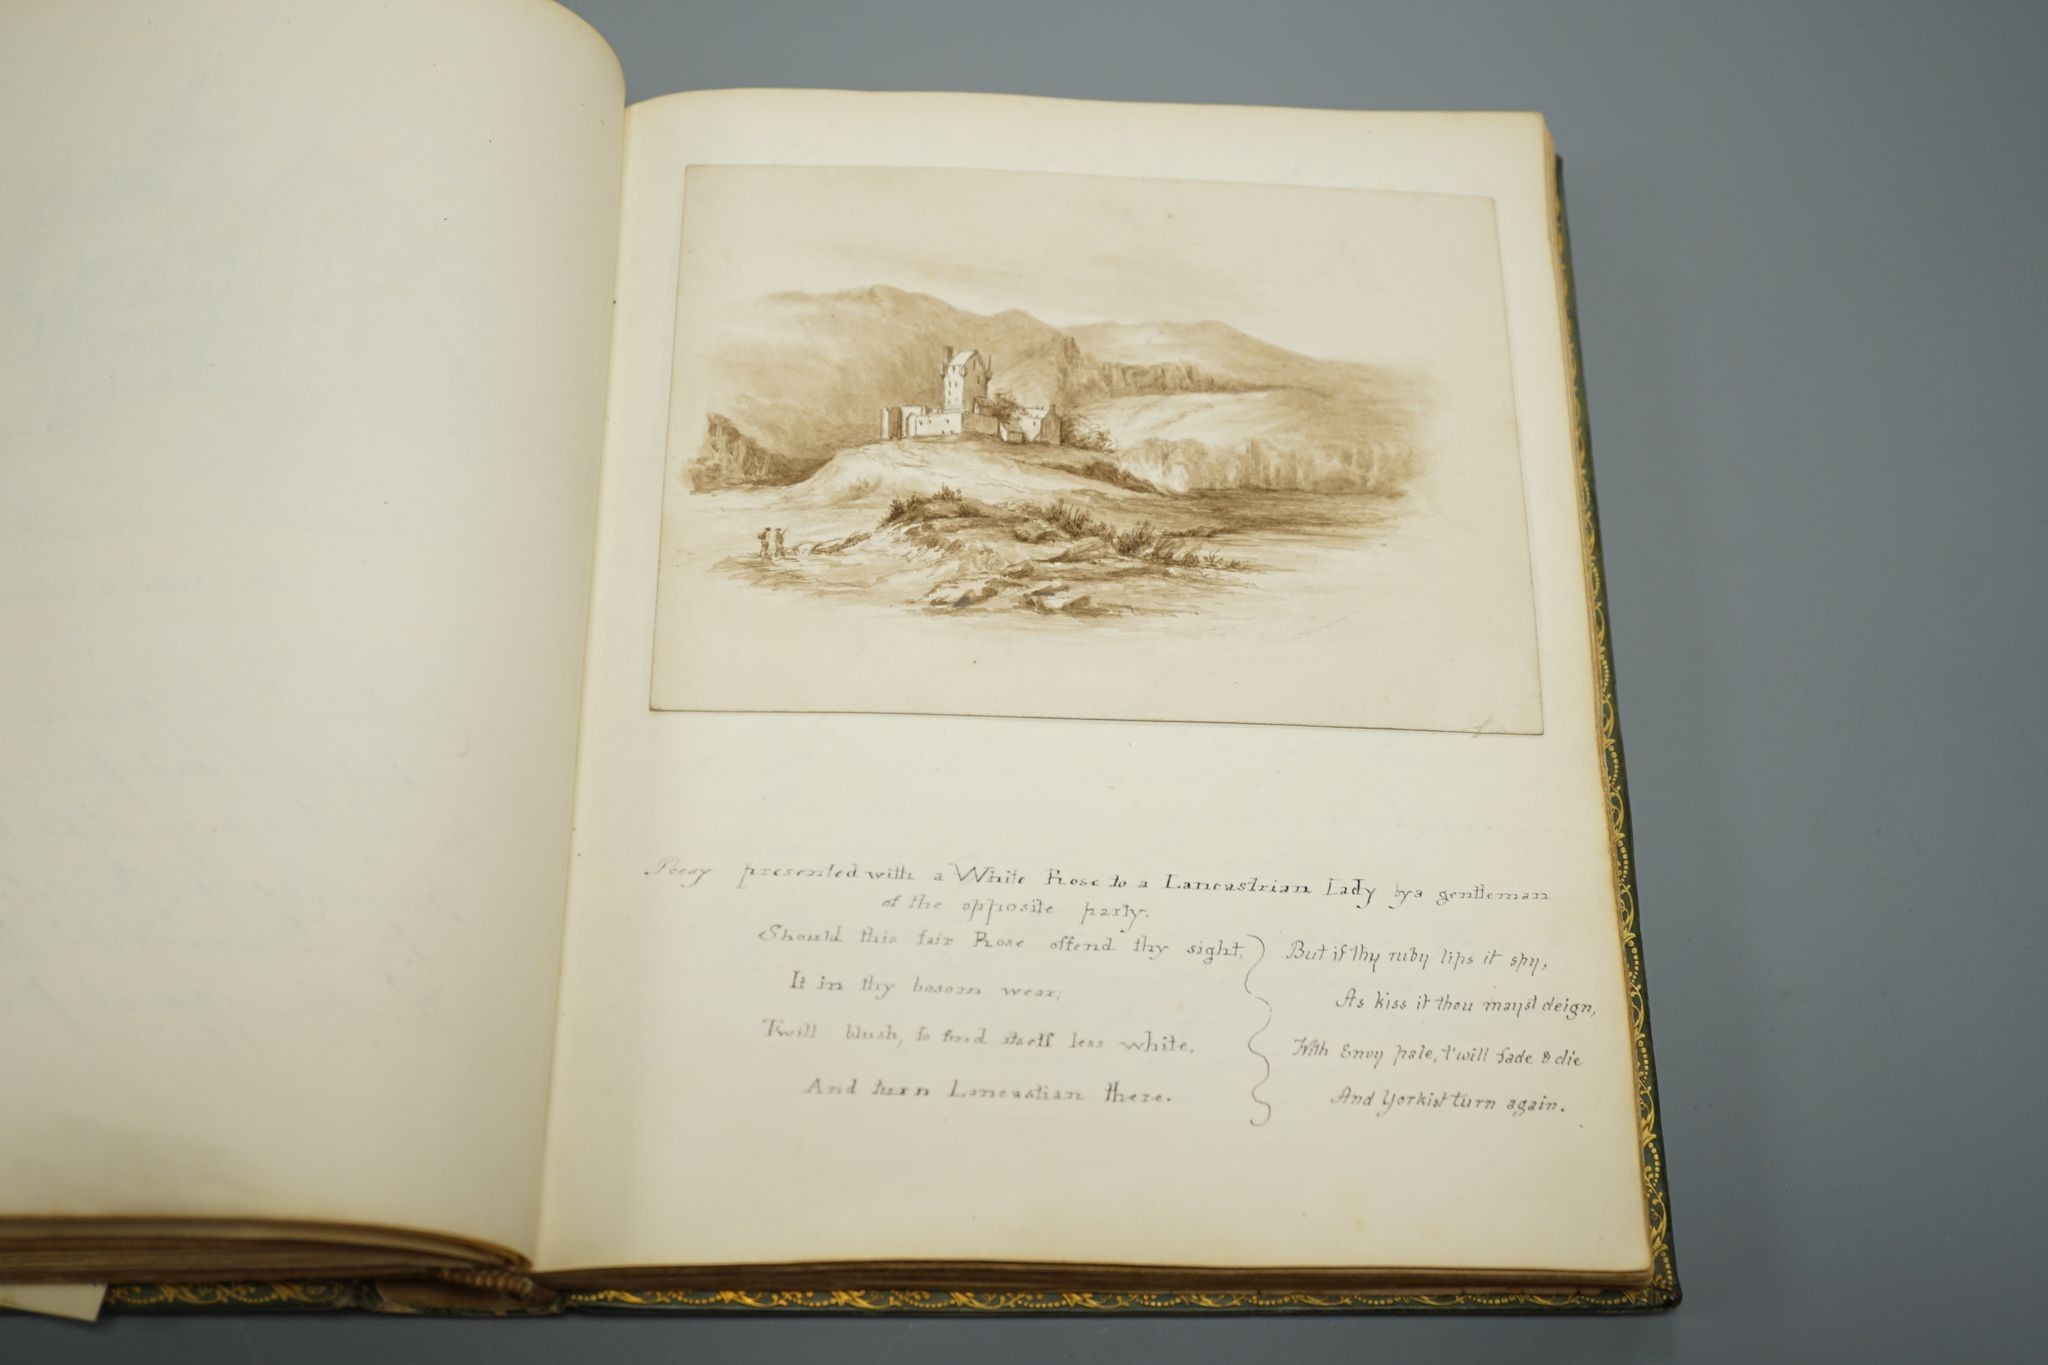 Poesy presented with a White Rose to a Lancastrian Lady by a gentleman
of the opposite party.
Should this fair Rose offend thy sight,
It in thy bosom wear;
Twill blush, to find itself less white,
And turn Lancastian there.
But if thy ruby lips it spy,
As kiss it thou mayst deign,
With Envy pale, t'will fade & die
And Yorkist turn again.